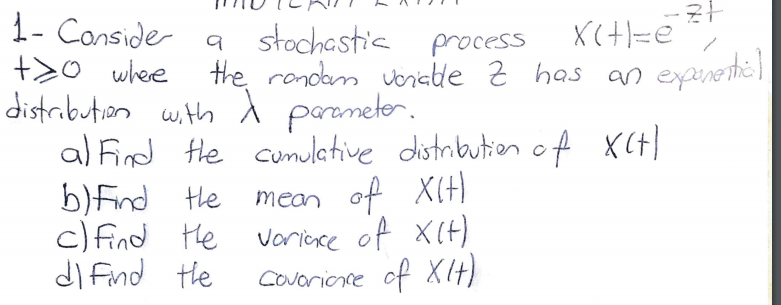 1- Consider a stochastic process X(t)=e^-Zt,
t≥0 where the random variable Z has an exponential
distribution with λ parameter.
a) Find the cumulative distribution of X(t)
b) Find the mean of X(t)
c) Find the variance of X(t)
d) Find the covariance of X(t)